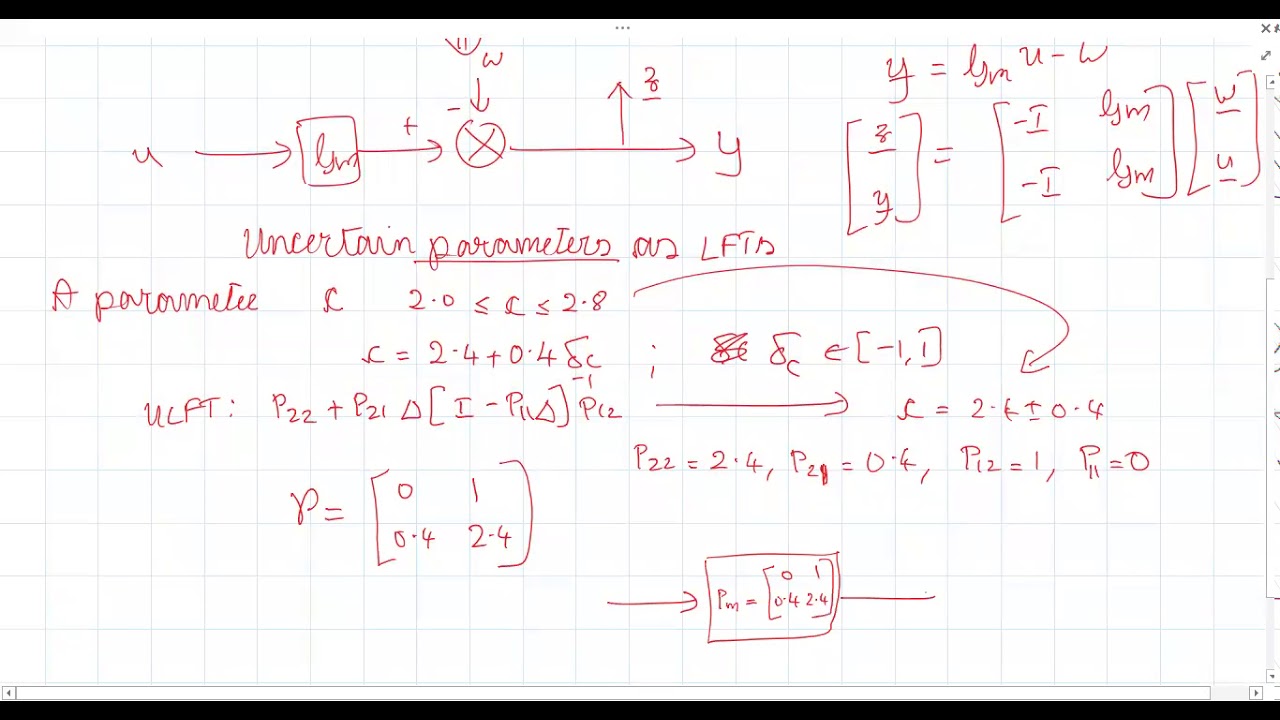 w
y = Gm u - w
z
u + - y
Gm
[z y] = [-I Gm -I Gm] [w u]
Uncertain parameters as LFTs
A parametee c 2.0 ≤ c ≤ 2.8
c = 2.4+0.4 δc ; δc ∈ [-1, 1]
ULFT: P22 + P21 Δ [I - P11Δ]^-1 P12 → c = 2.4 ± 0.4
P22 = 2.4, P21 = 0.4, P12 = 1, P11 = 0
P = [0 1
0.4 2.4]
Pm = [0 1
0.4 2.4]